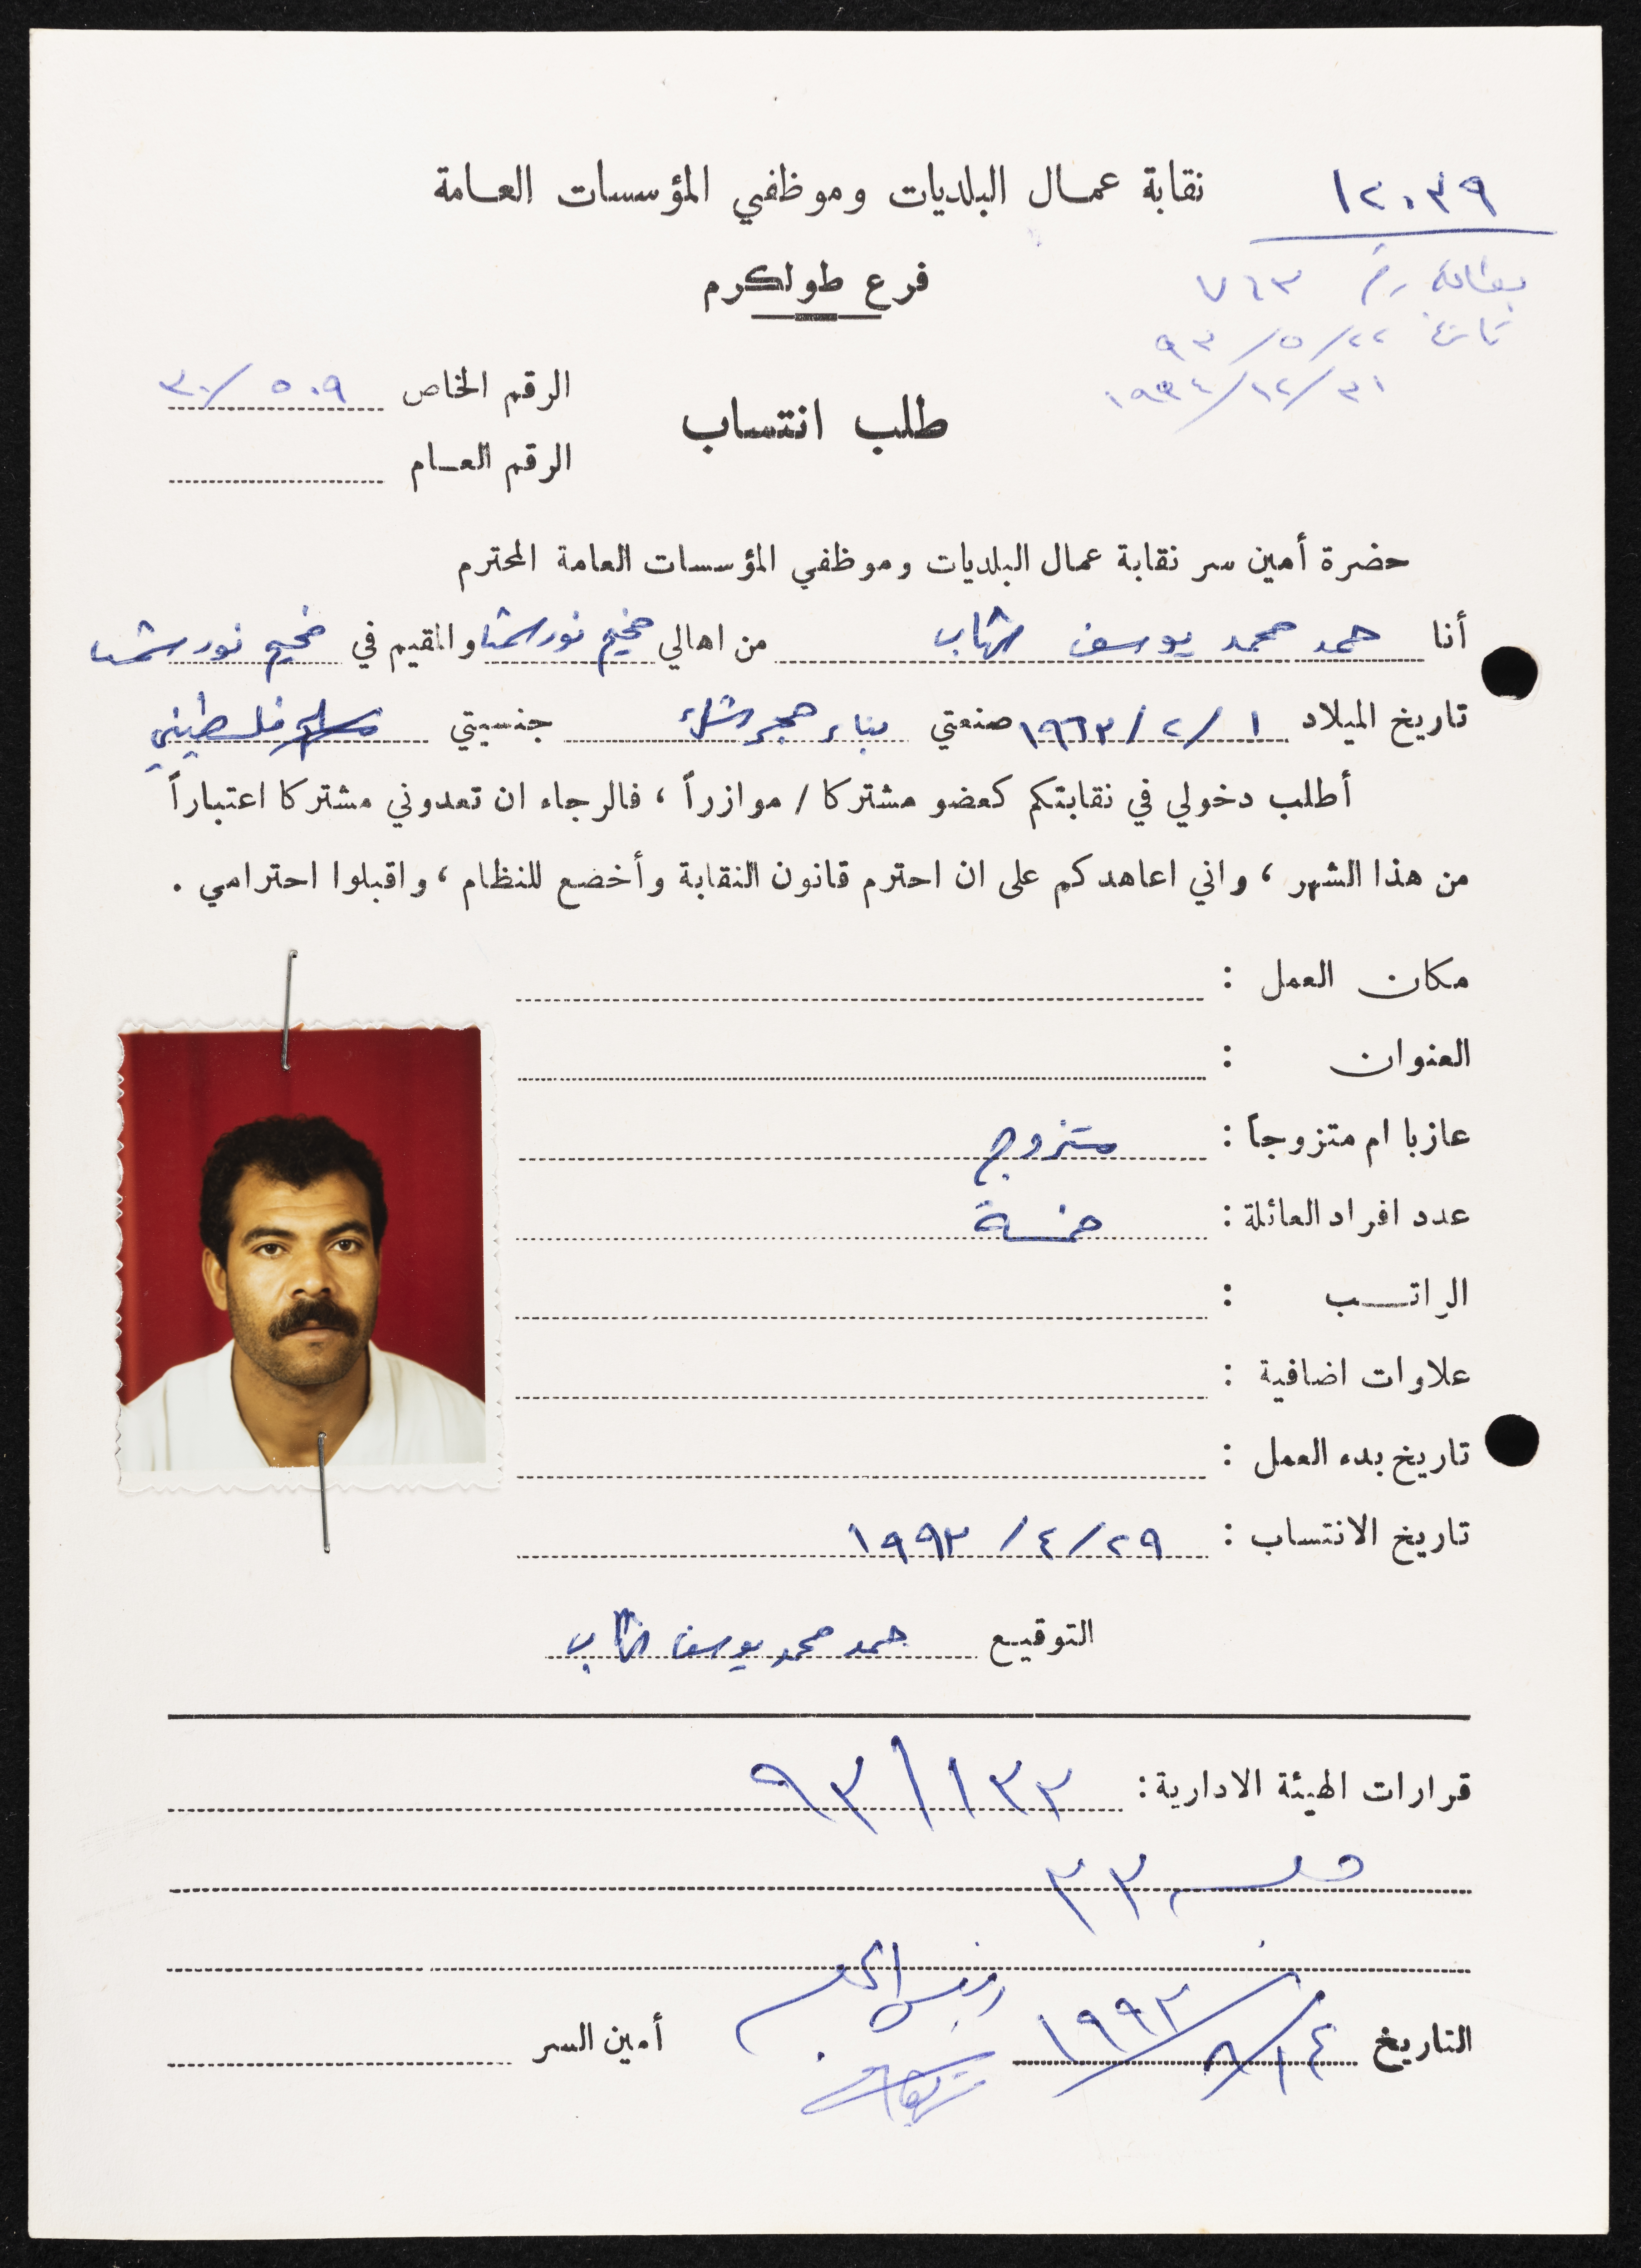 ١٢٠٣٩
نقابة عمال البلديات وموظفي المؤسسات العامة
بطاقة رقم ٧٦٣
فرع طولكرم
تاريخ ٢٢/٥/٩٣
٣١/١٢/١٩٩٤
الرقم الخاص ٥٠٩/٣٠
طلب انتساب
الرقم العام
حضرة أمين سر نقابة عمال البلديات وموظفي المؤسسات العامة المحترم
أنا حمد محمد يوسف من اهالي مخيم نور شمس والمقيم في مخيم نور شمس
تاريخ الميلاد ١/٢/١٩٦٣ صنعتي بناء حجر جنسيتي فلسطيني
أطلب دخولي في نقابتكم كعضو مشتركا / موازراً ، فالرجاء ان تعدوني مشتركا اعتباراً
من هذا الشهر ، واني اعاهدكم على ان احترم قانون النقابة وأخضع للنظام ، واقبلوا احترامي .
مكان العمل :
العنوان :
عازبا ام متزوجاً : متزوج
عدد افراد العائلة : خمسة
الراتب :
علاوات اضافية :
تاريخ بدء العمل :
تاريخ الانتساب : ٢٩/٤/١٩٩٣
التوقيع حمد محمد يوسف
قرارات الهيئة الادارية : ١٣٣/٩٣
جلسة ٣٣
التاريخ ١٩٩٣ أمين السر